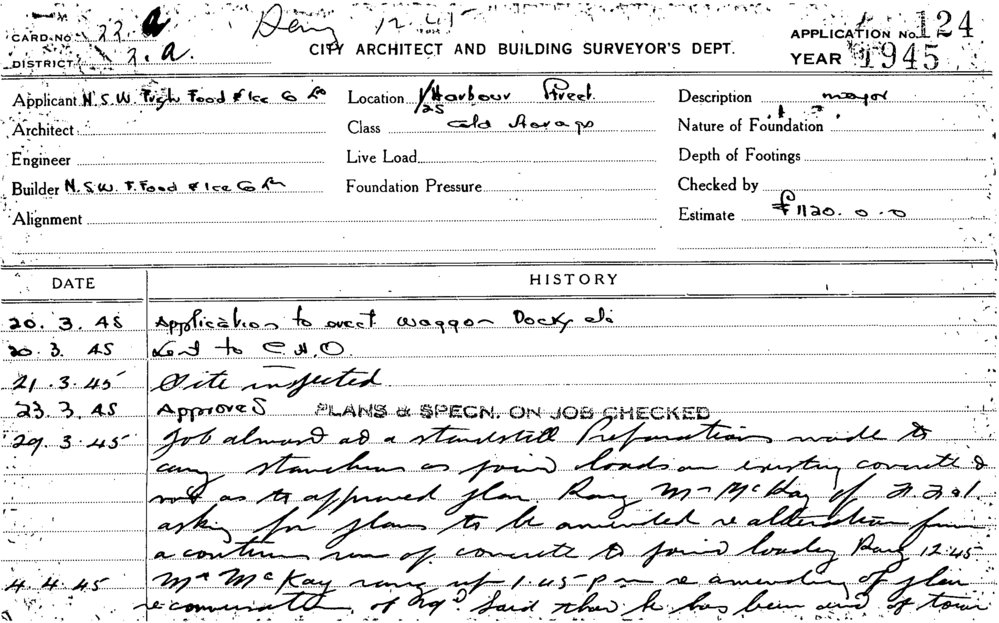 CARD No. 22.a
DISTRICT 2.a.
12.45
CITY ARCHITECT AND BUILDING SURVEYOR'S DEPT.
APPLICATION No. 124
YEAR 1945
Applicant N.S.W. Fresh Food & Ice Co
Location Harbour Street
Description major
Architect
Class Cold Storage
Nature of Foundation
Engineer
Live Load
Depth of Footings
Builder N.S.W. F. Food & Ice Co
Foundation Pressure
Checked by
Alignment
Estimate £1120.0.0
DATE HISTORY
20.3.45 Application to erect Waggon Dock
20.3.45 Sent to C.H.O.
21.3.45 Site inspected
23.3.45 Approved PLANS & SPECN. ON JOB CHECKED
29.3.45 Job almost at a standstill Preparations made to
carry stanchions as point loads on existing concrete &
not as to approved plan. Rang Mr McKay of
asking for plans to be amended re alteration from
a continuous run of concrete to point loading Rang 12.45
4.4.45 Mr McKay rang up 1.45 pm re amending of plan
re construction of Said that he has been out of town